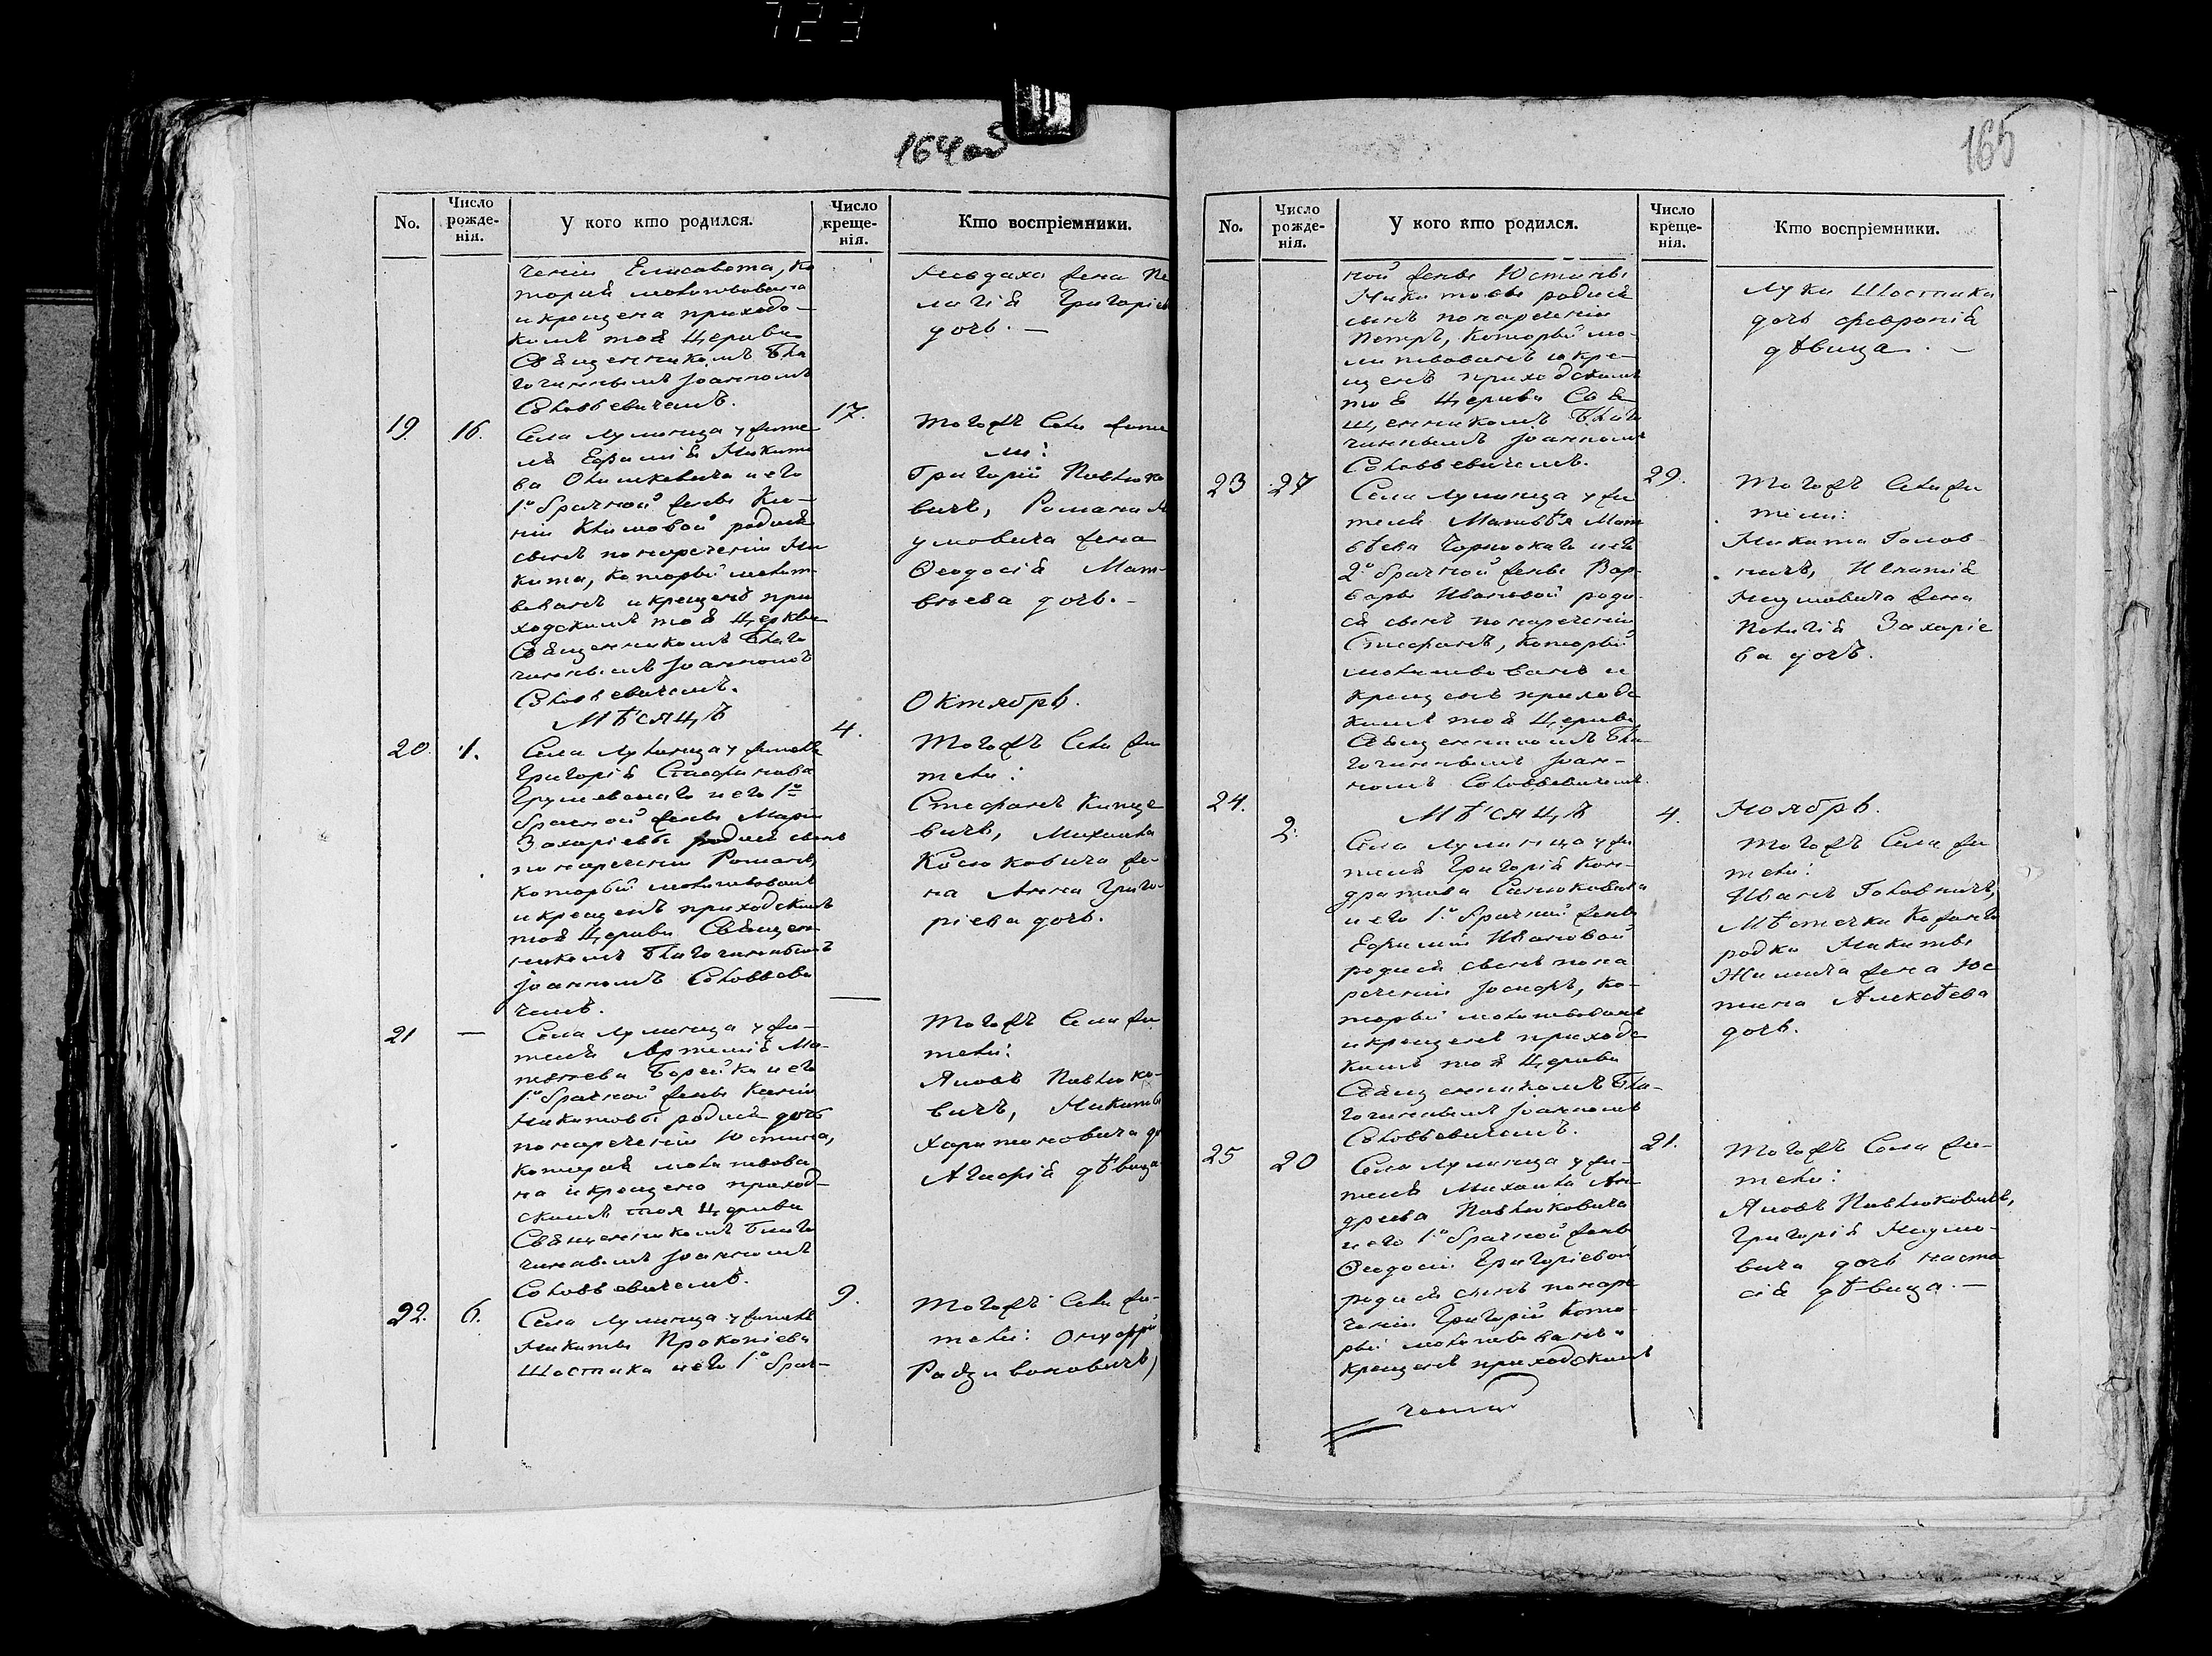 723
164об
No.
Число рожде-нія.
У кого кто родился.
Число креще-нія.
Кто воспріемники.
ченіи Елисавета, Ко
торая молитвована
и крещена приходс
кимъ тоя Церкви
Священникомъ Бла
гочиннымъ Іоанномъ
Соловьевичемъ.
Григорiева
дочь. —
19.
16.
Села Лулинца у жите
ля Ефимія Микито
ва и его
1о брачной жены Ксе-
ніи Климовой родился
сынъ по нареченіи Ни
кита, который молит
вованъ и крещенъ при
ходскимъ тоя Церкви
Священникомъ Благо
чиннымъ Іоанномъ
Соловьевичемъ.
17.
Тогожъ Села жите
ли:
Григорій Павлюко
вичъ, Романа Н
умовича жена
Ѳеодосія Мат-
вѣева дочь. —
МѢСЯЦЪ
Октябрь.
20.
1.
Села Лулинца у жителя
Григорія Стефанова
и его 1о
брачной жены Маріи
Захаріевы родился сынъ
по нареченіи Романъ,
который молитвованъ
и крещенъ приходскимъ
тоя Церкви Священ
никомъ Благочиннымъ
Іоанномъ Соловьеви
чемъ.
4.
Тогожъ Села жи
тели:
Стефанъ
вичъ, Михаила
Косюковича же-
на Анна Григо-
ріева дочь.
21
—
Села Лулинца у жи-
теля Артемія Ма-
твѣева Борейки и его
1о брачной жены Ксеніи
Никитовы родилась дочь
по нареченіи Юстина,
которая молитвова
на и крещена приход-
скимъ тоя Церкви
Священникомъ Благо
чиннымъ Іоанномъ
Соловьевичемъ.
—
Тогожъ Села жи
тели:
Яковъ Павлюко-
вичъ, Никиты
Харитоновича до
Агафія дѣвица
22.
6.
Села Лулинца у жителя
Никиты Прокопіева
Шостака и его 1о брач-
9.
Тогожъ Села жи-
тели: Онуфрій
Радзивоновичъ,
165
No.
Число рожде-нія.
У кого кто родился.
Число креще-нія.
Кто воспріемники.
ной жены Юстины
Никитовы родился
сынъ по нареченіи
Петръ, который мо-
литвованъ и кре-
щенъ приходскимъ
тоя Церкви Свя
щенникомъ Благо
чиннымъ Іоанномъ
Соловьевичемъ.
Луки Шостака
дочь Февронія
дѣвица. —
23
27
Села Лулинца у жи
теля Матвѣя Мат
вѣева и его
2о брачной жены Вар-
вары Ивановой роди-
ся сынъ по нареченіи
Стефанъ, который
молитвованъ и
крещенъ приходс
кимъ тоя Церкви
Священникомъ Бла-
гочиннымъ Іоан-
номъ Соловьевичемъ.
29.
Тогожъ Села жи
тели:
Никита Голов-
ничъ, Игнатія
Наумовича жена
Пелагія Захаріе
ва дочь.
24.
МѢСЯЦЪ
Ноябрь.
2.
Села Лулинца у жи
теля Григорія Кон-
дратова Санюковича
и его 1о брачной жены
Ефиміи Ивановой
родился сынъ по на
реченіи Іосифъ, ко-
торый молитвованъ
и крещенъ приходс
кимъ тоя Церкви
Священникомъ Бла-
гочиннымъ Іоанномъ
Соловьевичемъ.
4.
Тогожъ Села жи
тели:
Иванъ Головничъ,
Мѣстечка Кожанго
родка Никиты
жена Юс
тина Алексѣева
дочь.
25
20
Села Лулинца у жи-
теля Михаила Ан-
дреева Павлюковича
и его 1о брачной жены
Ѳеодосіи Григоріевой
родился сынъ по наре
ченіи Григорій кото-
рый молитвованъ и
крещенъ приходскимъ
21.
Тогожъ Села жи-
тели:
Яковъ Павлюковичъ,
Григорія Наумо-
вича дочь Наста
сія дѣвица. —